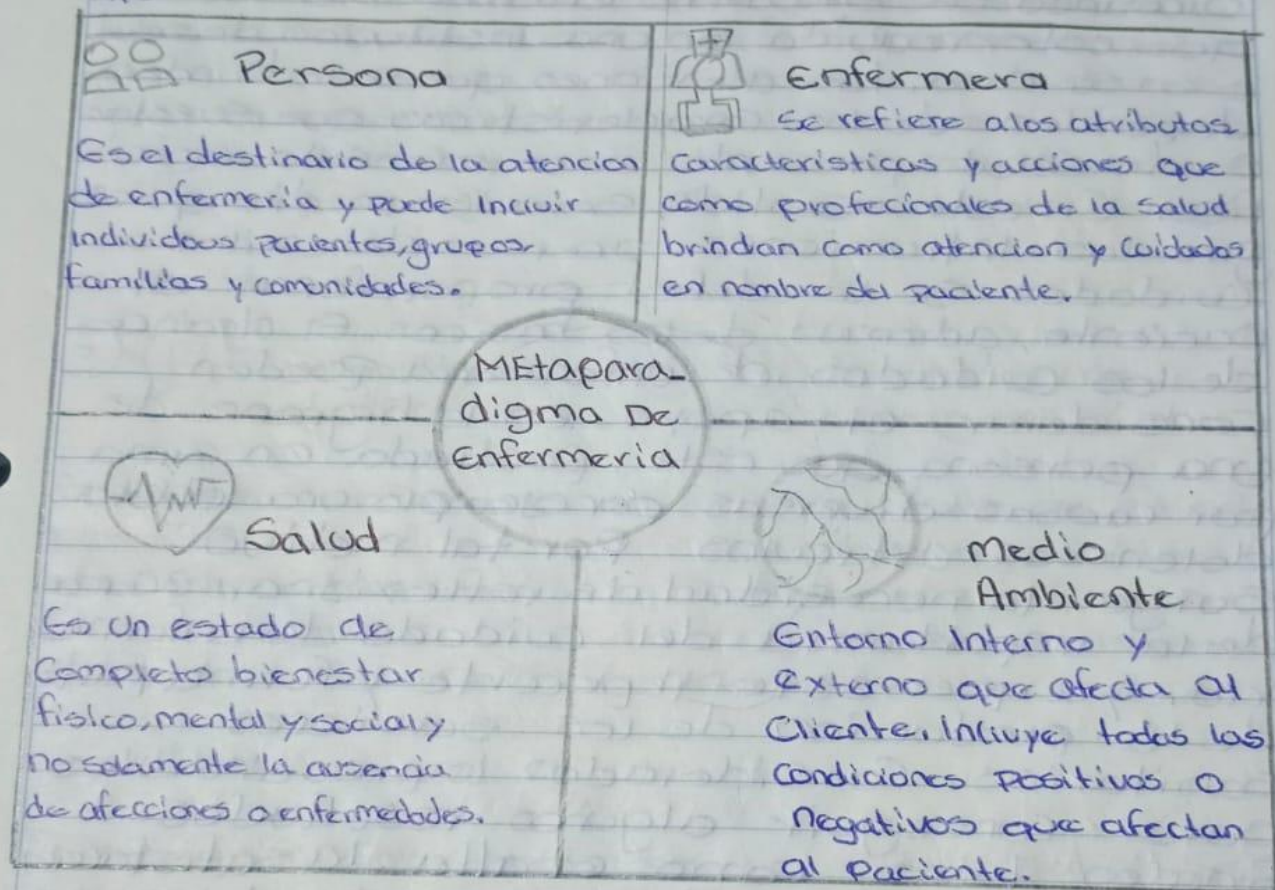 Persona
Es el destinario de la atencion
de enfermeria y puede Incluir
individuos pacientes, grupos,
familias y comunidades.
Enfermera
Se refiere a los atributos
caracteristicas y acciones que
como profecionales de la salud
brindan como atencion y cuidados
en nombre del paciente.
MEtapara-
digma De
Enfermeria
Salud
Es un estado de
Completo bienestar
fisico, mental y social y
no solamente la ausencia
de afecciones o enfermedades.
Medio
Ambiente
Entorno Interno y
externo que afecta al
Cliente. Incluye todas las
condiciones positivas o
negativas que afectan
al paciente.